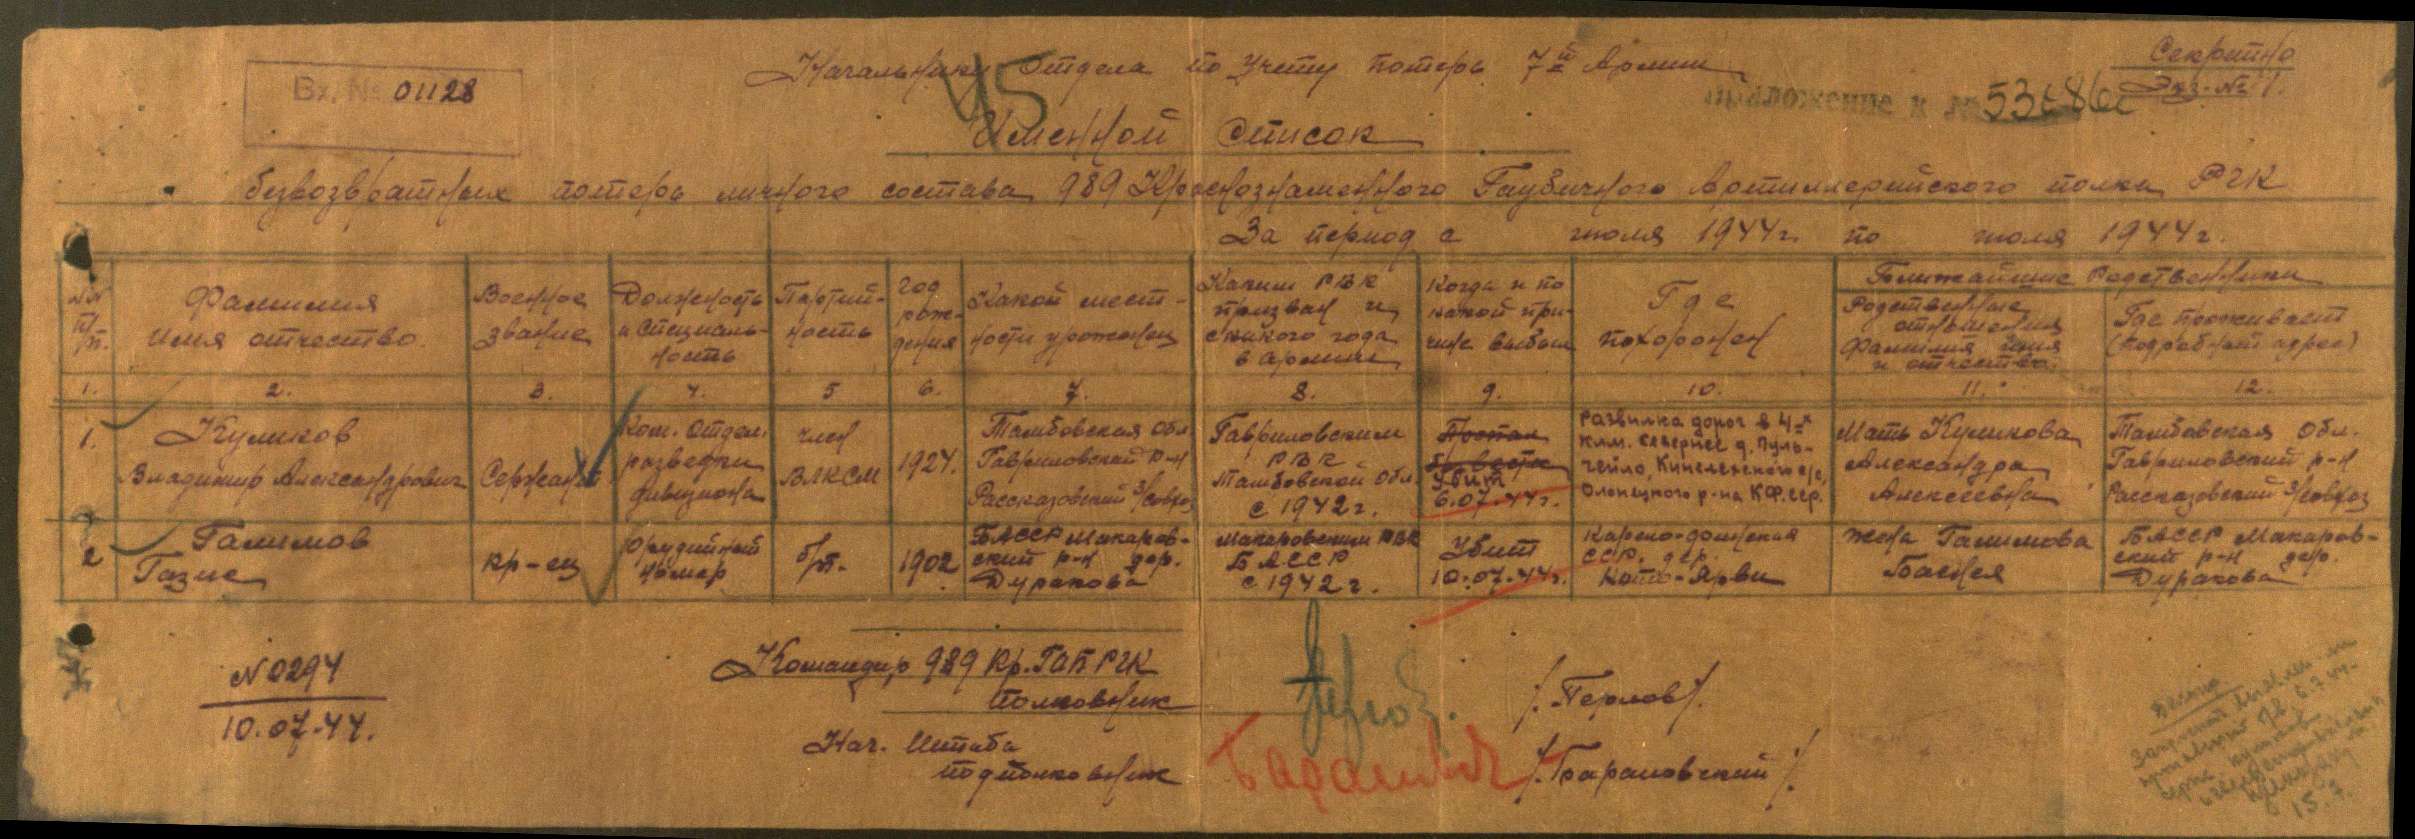 Секретно
Экз. № 1.
Вх. № 01128
Начальнику Отдела по учету потерь 7й Армии
45
Приложение к № 53886с
Именной список
безвозвратных потерь личного состава 989 Краснознаменного Гаубичного Артиллерийского полка РГК
За период с июля 1944г. по июля 1944г.
№№ п/п.
Фамилия
Имя отчество.
Военное
звание
Должность
и специаль-
ность
Партий-
ность
год
рож-
дения
Какой мест-
ности уроженец
Каким РВК
призван и
с какого года
в армии
Когда и по
какой при-
чине выбыл
Где
похоронен
Ближайшие Родственники
Родственные
отношения
Фамилия имя
и отчество.
Где проживает
(подробный адрес)
1. 2. 3. 4. 5 6. 7. 8. 9. 10. 11. 12.
1.
Куликов
Владимир Александрович
Сержант
Ком. отдел.
разведки
дивизиона
член
ВЛКСМ
1924.
Тамбовская обл.
Гавриловский р-н
Рассказовский з/совхоз
Гавриловским
РВК
Тамбовской обл.
с 1942г.
Пропал
Убит
6.07.44г.
Развилка дорог в 4-х
клм. севернее д. Пуль-
чейло, Кинелахского с/с,
Олонецкого р-на КФССР.
Мать Куликова
Александра
Алексеевна
Тамбовская обл.
Гавриловский р-н
Рассказовский з/совхоз
2
Галимов
Газис
кр-ец
Орудийный
номер
б/п.
1902
БАССР Макаров-
ский р-н дер.
Дуракова
Макаровским РВК
БАССР
с 1942г.
Убит
10.07.44г.
Карело-финская
ССР. дер.
Коту-Ярви
жена Галимова
Баснея
БАССР Макаров-
ский р-н дер.
Дуракова
№0294
10.07.44.
Командир 989 Кр. ГАП РГК
полковник
/Перлов/.
Нач. Штаба
подполковник
/Барановский/.
15.7.